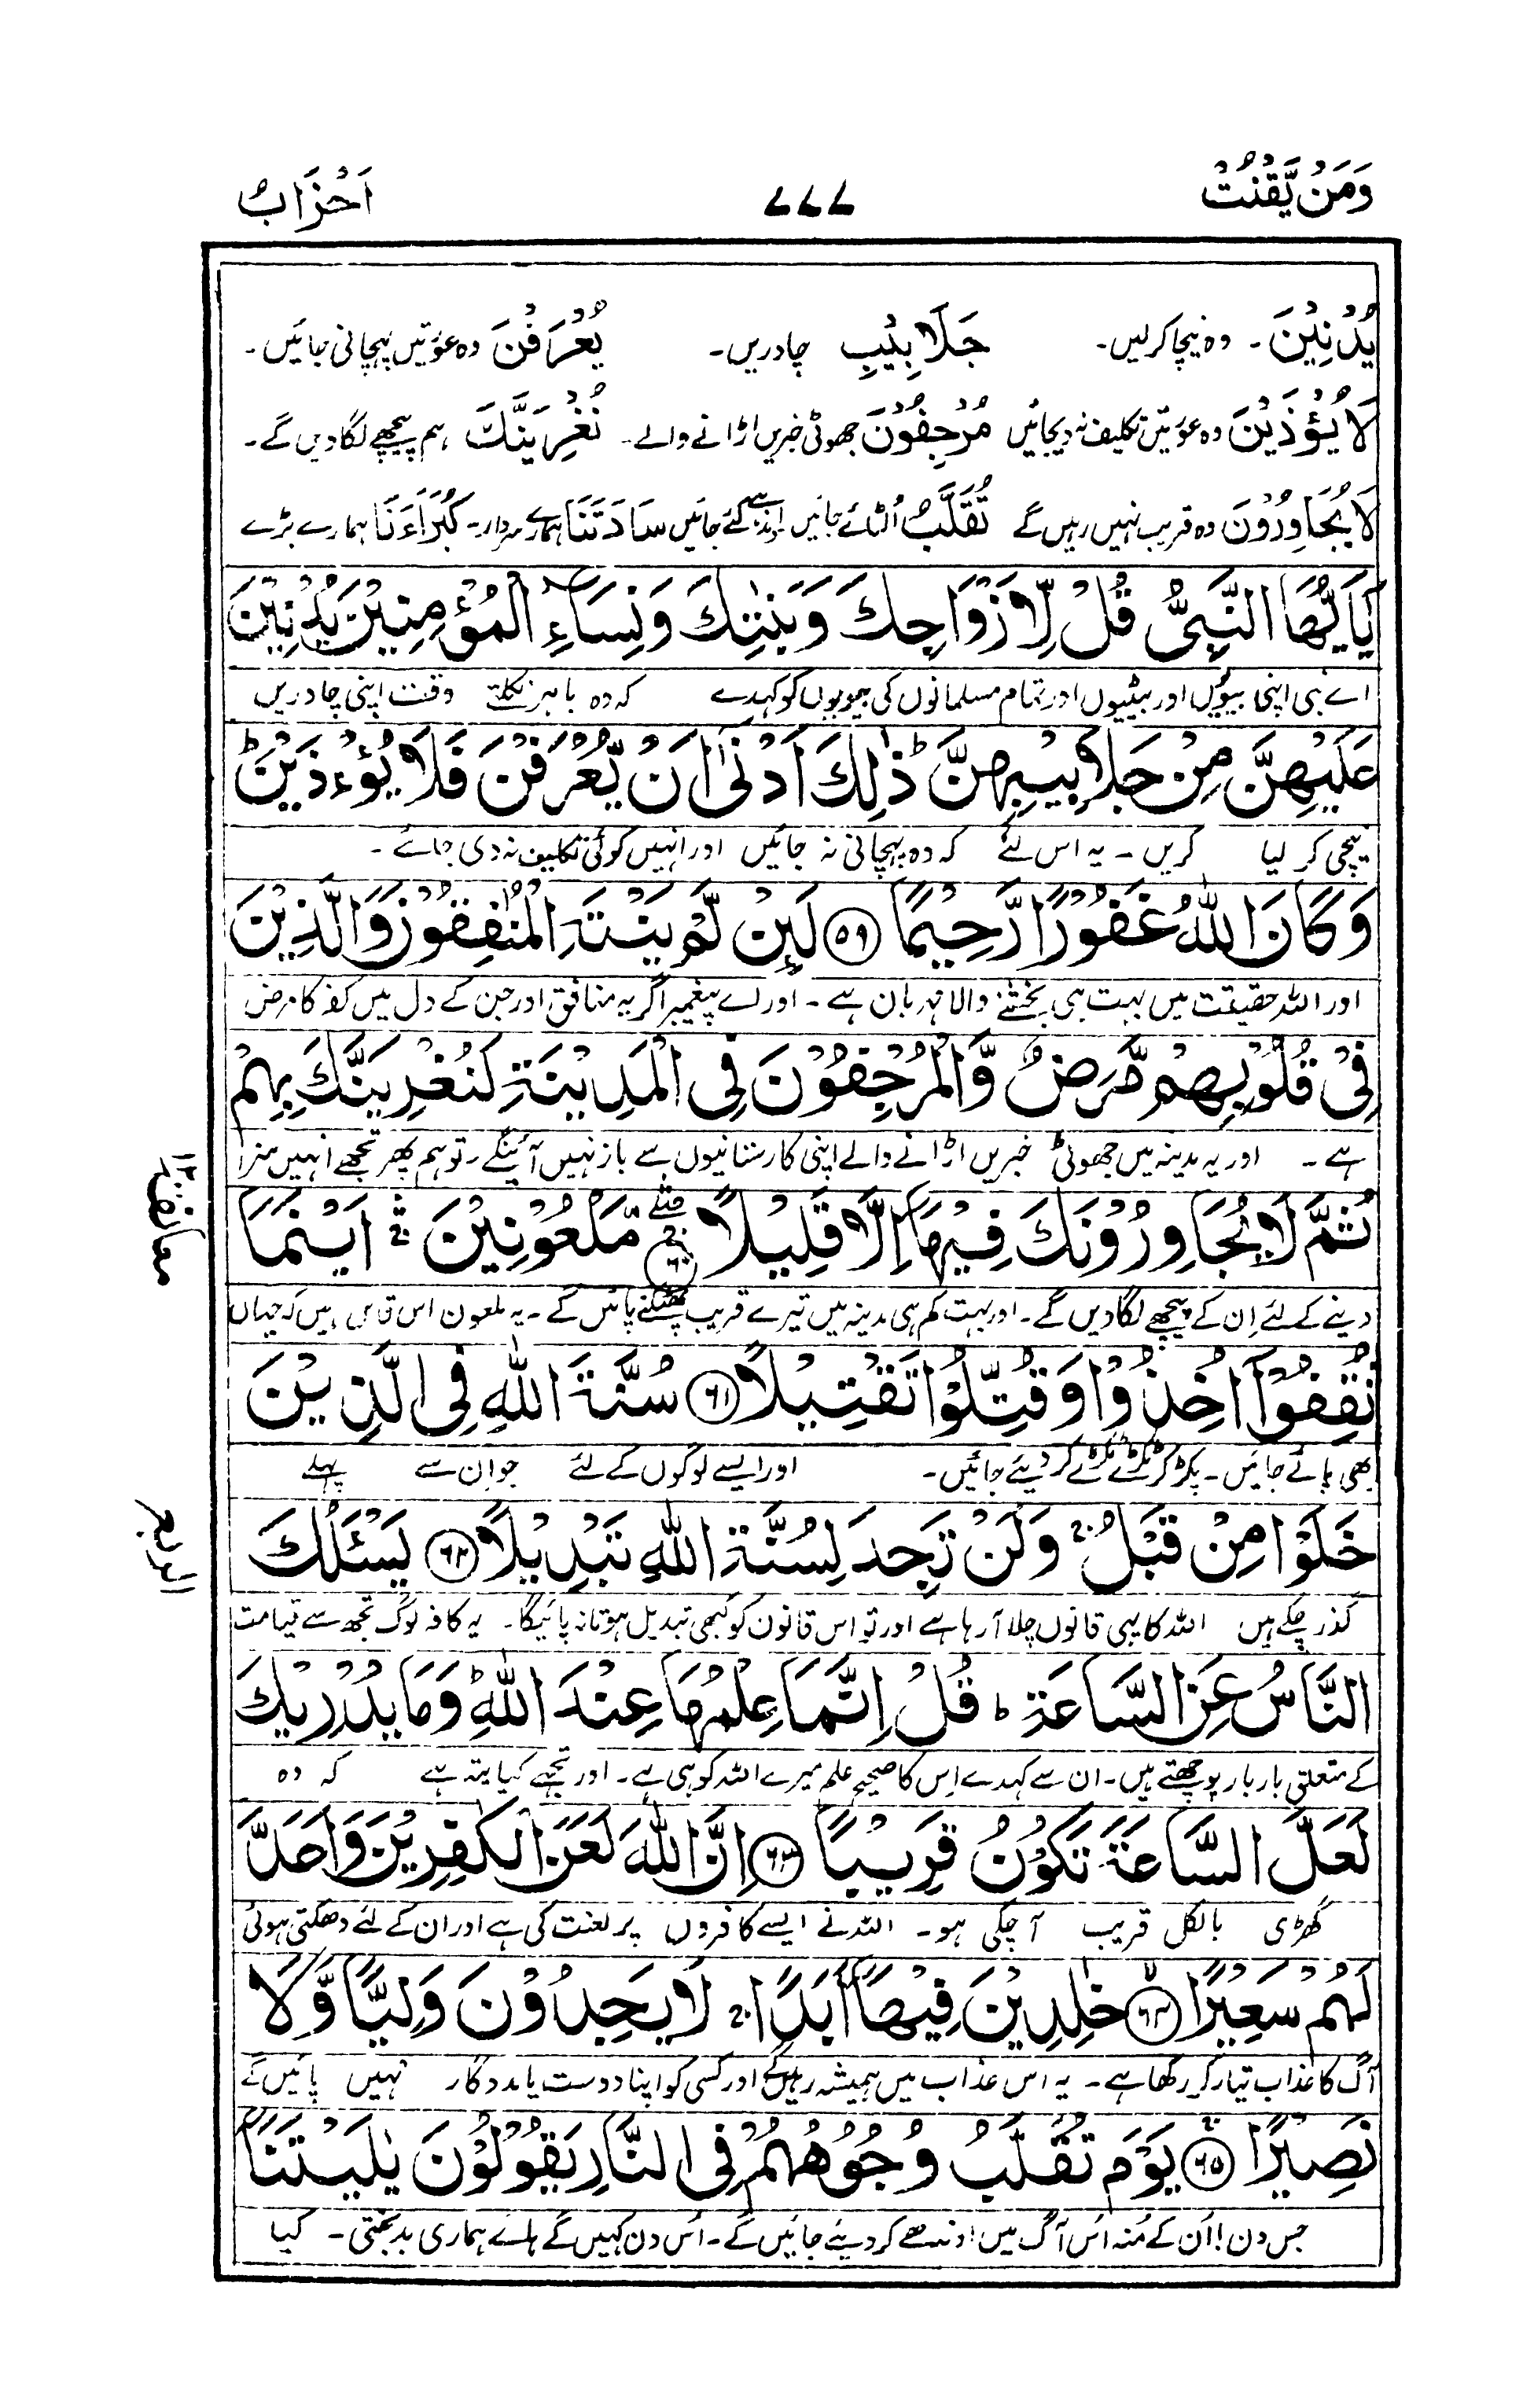 وَمَنْ يَّقْنُتْ ۷۷۷ اَحْزَابٌ
يُدْنِيْنَ ۔ وہ نیچا کرلیں۔ جَلَابِيْبِ چادریں۔ يُعْرَفْنَ وہ عورتیں پہچانی جائیں۔
لَا يُؤْذَيْنَ وہ عورتیں تکلیف نہ دیجائیں مُرْجِفُوْنَ جھوٹی خبریں اڑانے والے۔ نُغْرِيَنَّكَ ہم پیچھے لگا دیں گے۔
لَا يُجَاوِرُوْنَ وہ قریب نہیں رہیں گے تُقَلَّبُ اُلٹائے جائیں اوندھے کئے جائیں سَادَتَنَا ہمارے سردار۔ كُبَرَآءَنَا ہمارے بڑے
يٰۤاَيُّهَا النَّبِىُّ قُلْ لِّاَزْوَاجِكَ وَبَنٰتِكَ وَنِسَآءِ الْمُؤْمِنِيْنَ يُدْنِيْنَ
اے نبی اپنی بیویوں اور بیٹیوں اور تمام مسلمانوں کی بیویوں کو کہدے کہ وہ باہر نکلتے وقت اپنی چادریں
عَلَيْهِنَّ مِنْ جَلَابِيْبِهِنَّ ؕ ذٰلِكَ اَدْنٰۤى اَنْ يُّعْرَفْنَ فَلَا يُؤْذَيْنَ ؕ
نیچی کر لیا کریں ۔ یہ اس لئے کہ وہ پہچانی نہ جائیں اور انہیں کوئی تکلیف نہ دی جائے ۔
وَكَانَ اللّٰهُ غَفُوْرًا رَّحِيْمًا ﴿۵۹﴾ لَىِٕنْ لَّمْ يَنْتَهِ الْمُنٰفِقُوْنَ وَالَّذِيْنَ
اور اللہ حقیقت میں بہت ہی بخشنے والا مہربان ہے ۔ اور اے پیغمبر اگر یہ منافق اور جن کے دل میں کفر کا مرض
فِىْ قُلُوْبِهِمْ مَّرَضٌ وَّالْمُرْجِفُوْنَ فِى الْمَدِيْنَةِ لَنُغْرِيَنَّكَ بِهِمْ
ہے ۔ اور یہ مدینہ میں جھوٹی خبریں اڑانے والے اپنی کارستانیوں سے باز نہیں آئینگے ۔ تو ہم پھر تجھے انہیں سزا
ثُمَّ لَا يُجَاوِرُوْنَكَ فِيْهَاۤ اِلَّا قَلِيْلًا ﴿۶۰﴾ مَّلْعُوْنِيْنَ ۛ اَيْنَمَا
دینے کے لئے اِن کے پیچھے لگا دیں گے ۔ اور بہت کم ہی مدینہ میں تیرے قریب پھٹکنے پائیں گے ۔ یہ ملعون اس قابل ہیں کہ جہاں
ثُقِفُوْۤا اُخِذُوْا وَقُتِّلُوْا تَقْتِيْلًا ﴿۶۱﴾ سُنَّةَ اللّٰهِ فِى الَّذِيْنَ
بھی پائے جائیں ۔ پکڑ کر ٹکڑے ٹکڑے کر دیئے جائیں۔ اور ایسے لوگوں کے لئے جو اِن سے پہلے
خَلَوْا مِنْ قَبْلُ ۚ وَلَنْ تَجِدَ لِسُنَّةِ اللّٰهِ تَبْدِيْلًا ﴿۶۲﴾ يَسْئَلُكَ
گذر چکے ہیں اللہ کا یہی قانون چلا آ رہا ہے اور تو اس قانون کو کبھی تبدیل ہوتا نہ پائیگا ۔ یہ کافر لوگ تجھ سے قیامت
النَّاسُ عَنِ السَّاعَةِ ؕ قُلْ اِنَّمَا عِلْمُهَا عِنْدَ اللّٰهِ ؕ وَمَا يُدْرِيْكَ
کے متعلق بار بار پوچھتے ہیں ۔ ان سے کہدے اِس کا صحیح علم میرے اللہ کو ہی ہے ۔ اور تجھے کیا پتہ ہے کہ وہ
لَعَلَّ السَّاعَةَ تَكُوْنُ قَرِيْبًا ﴿۶۳﴾ اِنَّ اللّٰهَ لَعَنَ الْكٰفِرِيْنَ وَاَعَدَّ
گھڑی بالکل قریب آ چکی ہو ۔ اللہ نے ایسے کافروں پر لعنت کی ہے اور ان کے لئے دھکتی ہوئی
لَهُمْ سَعِيْرًا ﴿۶۴﴾ خٰلِدِيْنَ فِيْهَاۤ اَبَدًا ۚ لَا يَجِدُوْنَ وَلِيًّا وَّلَا
آگ کا عذاب تیار کر رکھا ہے ۔ یہ اس عذاب میں ہمیشہ رہیں گے اور کسی کو اپنا دوست یا مددگار نہیں پائیں گے
نَصِيْرًا ﴿۶۵﴾ يَوْمَ تُقَلَّبُ وُجُوْهُهُمْ فِى النَّارِ يَقُوْلُوْنَ يٰلَيْتَنَاۤ
جس دن اُن کے مُنہ اس آگ میں اوندھے کر دیئے جائیں گے ۔ اُس دن کہیں گے ہائے ہماری بدبختی ۔ کیا
معانقة ۱۲
الربع